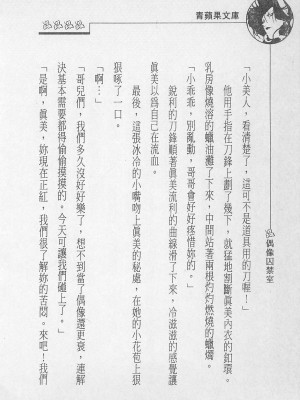 青蘋果文庫
偶像囚禁室
「小美人，看清楚了，這可不是道具用的刀喔！」
他用手指在刀鋒上劃了幾下，就猛地割斷眞美內衣的釦環。
乳房像燒溶的蠟油灘了下來，中間站著兩根灼灼燃燒的蠟燭。
「小乖乖，別亂動，哥哥會好好疼惜妳的。」
銳利的刀鋒順著眞美流利的曲線滑了下來，冷滋滋的感覺讓
眞美以爲自己在流血。
最後，這張冰冷的小嘴吻上眞美的秘處，在她的小花苞上狠
狠啄了一口。
「啊…」
「哥兒們，我們多久沒好好樂了，想不到當了偶像還更衰，連解
決基本需要都得偷偷摸摸的。今天可讓我們碰上了。」
「是啊，眞美，妳現在正紅，我們很了解妳的苦悶。來吧！我們